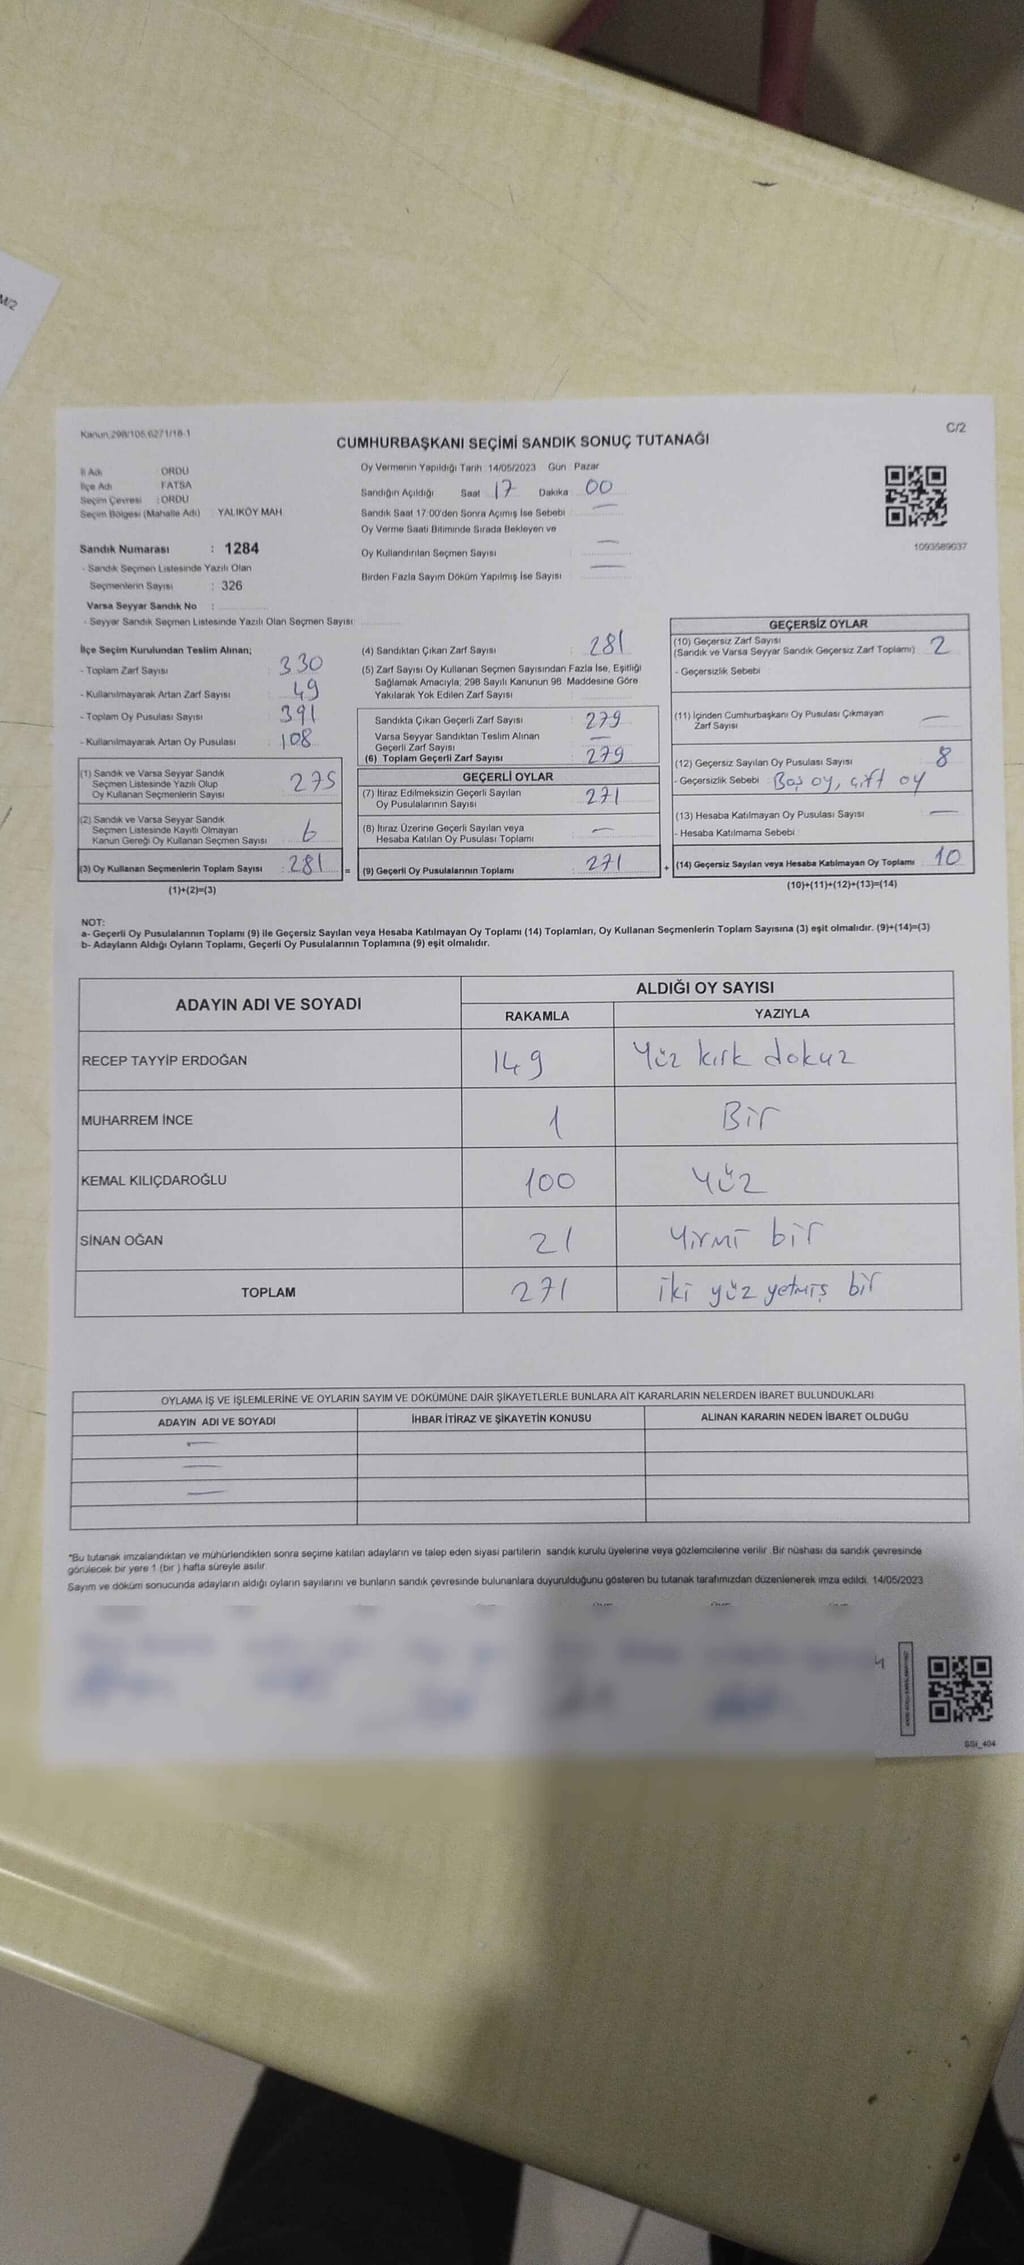 M/2
Kanun.298/105.6271/18-1
C/2
CUMHURBAŞKANI SEÇİMİ SANDIK SONUÇ TUTANAĞI
İl Adı ORDU
İlçe Adı FATSA
Seçim Çevresi : ORDU
Seçim Bölgesi (Mahalle Adı) YALIKÖY MAH
Sandık Numarası : 1284
- Sandık Seçmen Listesinde Yazılı Olan
Seçmenlerin Sayısı : 326
Varsa Seyyar Sandık No :
- Seyyar Sandık Seçmen Listesinde Yazılı Olan Seçmen Sayısı
Oy Vermenin Yapıldığı Tarih 14/05/2023 Gün Pazar
Sandığın Açıldığı Saat 17 Dakika 00
Sandık Saat 17:00'den Sonra Açımış İse Sebebi —
Oy Verme Saati Bitiminde Sırada Bekleyen ve
Oy Kullandırılan Seçmen Sayısı —
Birden Fazla Sayım Döküm Yapılmış İse Sayısı —
1093589637
İlçe Seçim Kurulundan Teslim Alınan;
- Toplam Zarf Sayısı : 330
- Kullanılmayarak Artan Zarf Sayısı : 49
- Toplam Oy Pusulası Sayısı : 391
- Kullanılmayarak Artan Oy Pusulası : 108
(1) Sandık ve Varsa Seyyar Sandık
Seçmen Listesinde Yazılı Olup
Oy Kullanan Seçmenlerin Sayısı 275
(2) Sandık ve Varsa Seyyar Sandık
Seçmen Listesinde Kayıtlı Olmayan
Kanun Gereği Oy Kullanan Seçmen Sayısı 6
(3) Oy Kullanan Seçmenlerin Toplam Sayısı : 281 =
(1)+(2)=(3)
(4) Sandıktan Çıkan Zarf Sayısı : 281
(5) Zarf Sayısı Oy Kullanan Seçmen Sayısından Fazla İse, Eşitliği
Sağlamak Amacıyla; 298 Sayılı Kanunun 98. Maddesine Göre
Yakılarak Yok Edilen Zarf Sayısı
Sandıkta Çıkan Geçerli Zarf Sayısı : 279
Varsa Seyyar Sandıktan Teslim Alınan
Geçerli Zarf Sayısı —
(6) Toplam Geçerli Zarf Sayısı : 279
GEÇERLİ OYLAR
(7) İtiraz Edilmeksizin Geçerli Sayılan
Oy Pusulalarının Sayısı : 271
(8) İtiraz Üzerine Geçerli Sayılan veya
Hesaba Katılan Oy Pusulası Toplamı : —
(9) Geçerli Oy Pusulalarının Toplamı : 271 +
GEÇERSİZ OYLAR
(10) Geçersiz Zarf Sayısı
(Sandık ve Varsa Seyyar Sandık Geçersiz Zarf Toplamı) 2
- Geçersizlik Sebebi
(11) İçinden Cumhurbaşkanı Oy Pusulası Çıkmayan
Zarf Sayısı —
(12) Geçersiz Sayılan Oy Pusulası Sayısı 8
- Geçersizlik Sebebi Boş oy, çift oy
(13) Hesaba Katılmayan Oy Pusulası Sayısı —
- Hesaba Katılmama Sebebi
(14) Geçersiz Sayılan veya Hesaba Katılmayan Oy Toplamı 10
(10)+(11)+(12)+(13)=(14)
NOT:
a- Geçerli Oy Pusulalarının Toplamı (9) ile Geçersiz Sayılan veya Hesaba Katılmayan Oy Toplamı (14) Toplamları, Oy Kullanan Seçmenlerin Toplam Sayısına (3) eşit olmalıdır. (9)+(14)=(3)
b- Adayların Aldığı Oyların Toplamı, Geçerli Oy Pusulalarının Toplamına (9) eşit olmalıdır.
ADAYIN ADI VE SOYADI ALDIĞI OY SAYISI
RAKAMLA YAZIYLA
RECEP TAYYİP ERDOĞAN 149 Yüz kırk dokuz
MUHARREM İNCE 1 Bir
KEMAL KILIÇDAROĞLU 100 Yüz
SİNAN OĞAN 21 Yirmi bir
TOPLAM 271 iki yüz yetmiş bir
OYLAMA İŞ VE İŞLEMLERİNE VE OYLARIN SAYIM VE DÖKÜMÜNE DAİR ŞİKAYETLERLE BUNLARA AİT KARARLARIN NELERDEN İBARET BULUNDUKLARI
ADAYIN ADI VE SOYADI İHBAR İTİRAZ VE ŞİKAYETİN KONUSU ALINAN KARARIN NEDEN İBARET OLDUĞU
—
—
—
*Bu tutanak imzalandıktan ve mühürlendikten sonra seçime katılan adayların ve talep eden siyasi partilerin sandık kurulu üyelerine veya gözlemcilerine verilir. Bir nüshası da sandık çevresinde
görülecek bir yere 1 (bir ) hafta süreyle asılır.
Sayım ve döküm sonucunda adayların aldığı oyların sayılarını ve bunların sandık çevresinde bulunanlara duyurulduğunu gösteren bu tutanak tarafımızdan düzenlenerek imza edildi. 14/05/2023
SSI_404